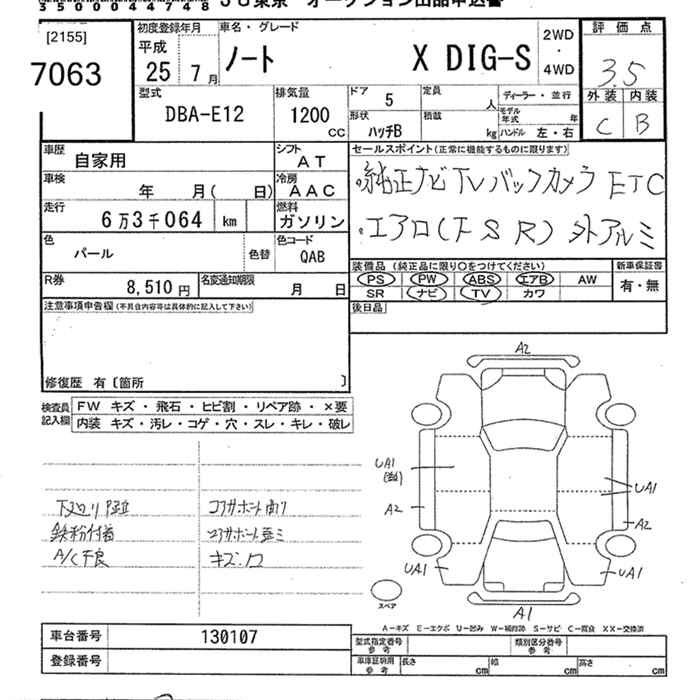 3500044748
JU東京 オークション出品申込書
[2155]
7063
初度登録年月
平成
25 7月
車名・グレード
ノート X DIG-S
2WD
・
4WD
評価点
3.5
外装 内装
C B
型式
DBA-E12
排気量
1200
CC
ドア 5
形状 ハッチB
定員 人
積載 kg
ディーラー・並行
モデル年式 年
ハンドル 左・右
車歴
自家用
シフト
AT
車検
年 月( 日)
冷房
AAC
走行
6万3千064 km
燃料
ガソリン
色
パール
色替
色コード
QAB
R券
8,510円
名変通知期限
月 日
セールスポイント(正常に機能するものに限ります)
・純正ナビ TV バックカメラ ETC
・エアロ(F S R) 外アルミ
装備品(純正品に限り○をつけてください)
PS PW ABS エアB AW
SR ナビ TV カワ
新車保証書
有・無
後日品
注意事項申告欄(不具合内容等は具体的に記入して下さい)
修復歴 有〔箇所 〕
検査員記入欄
FW キズ・飛石・ヒビ割・リペア跡・×要
内装 キズ・汚レ・コゲ・穴・スレ・キレ・破レ
鉄粉付着
A/C不良
コアサポート曲り
コアサポート歪ミ
A2
UA1
A2
UA1
UA1
A2
UA1
A1
スペア
A-キズ E-エクボ U-凹み W-補修跡 S-サビ C-腐食 XX-交換済
車台番号 130107
登録番号
型式指定番号
参考
類別区分番号
参考
車庫証明用
参考
長さ cm 幅 cm 高さ cm